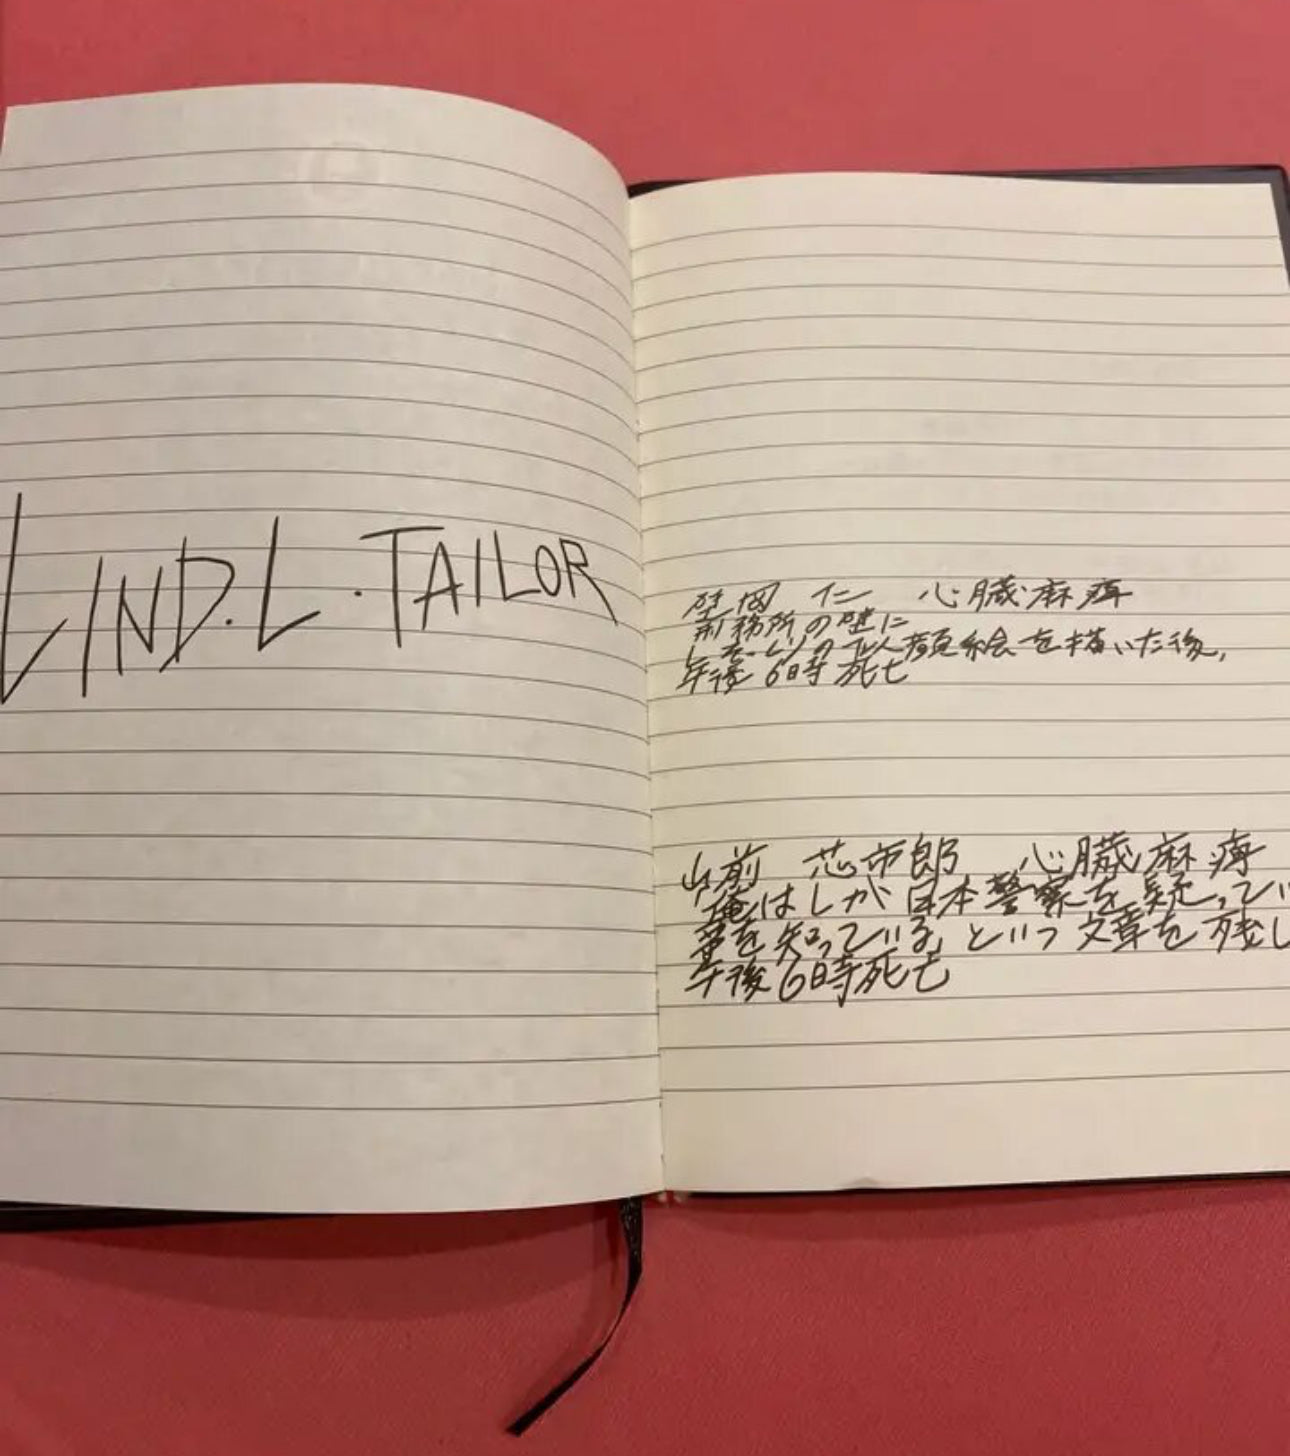 LIND.L.TAILOR
岡 仁 心臓麻痺
刑務所の壁に
の似顔絵を描いた後,
午後6時死亡
山前 芯市郎 心臓麻痺
俺はLが日本警察を疑ってい
事を知っている」という文章を残し
午後6時死亡